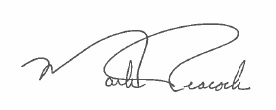 M. Mark Peacock